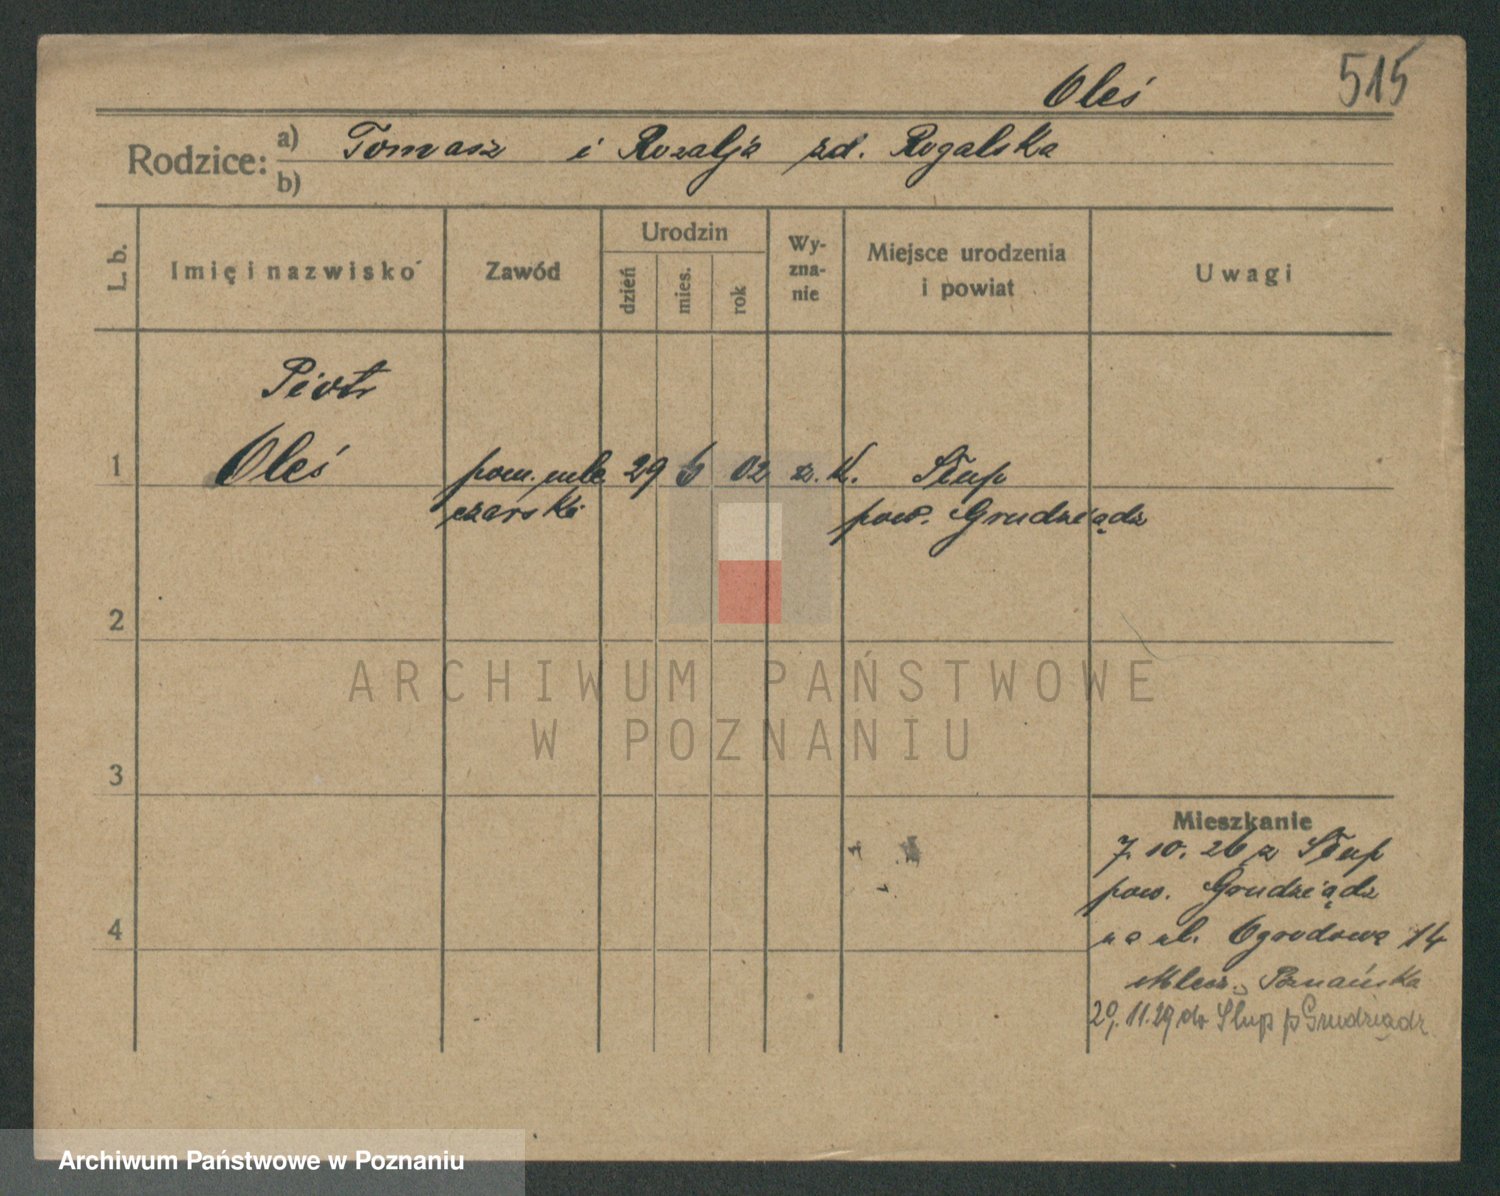 515
Oleś
Rodzice:
a) Tomasz i Rozalja zd. Rogalska
b)
L. b.
Imię i nazwisko
Zawód
Urodzin
dzień
mies.
rok
Wy-
zna-
nie
Miejsce urodzenia
i powiat
Uwagi
Piotr
1 Oleś pom. mle 29 6 02 rz. K. Słup
czarski pow. Grudziądz
2
3
4
Mieszkanie
7. 10. 26 z Słup
pow. Grudziądz
na ul. Ogrodową 14
Mlecz. Poznańska
29. 11. 29 do Słup p Grudziądz
ARCHIWUM PAŃSTWOWE
W POZNANIU
Archiwum Państwowe w Poznaniu